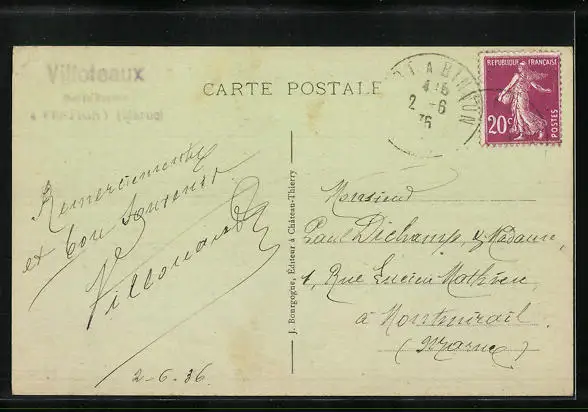 Villoteaux
CARTE POSTALE
REPUBLIQUE FRANÇAISE
20c
POSTES
2 -6
36
Remerciements
et bon souvenir
2-6-36
J. Bourgogne, Éditeur à Château-Thierry
Monsieur
Paul Dichamp, & Madame,
1, Rue Lucien Mathieu
à Montmirail
(Marne)